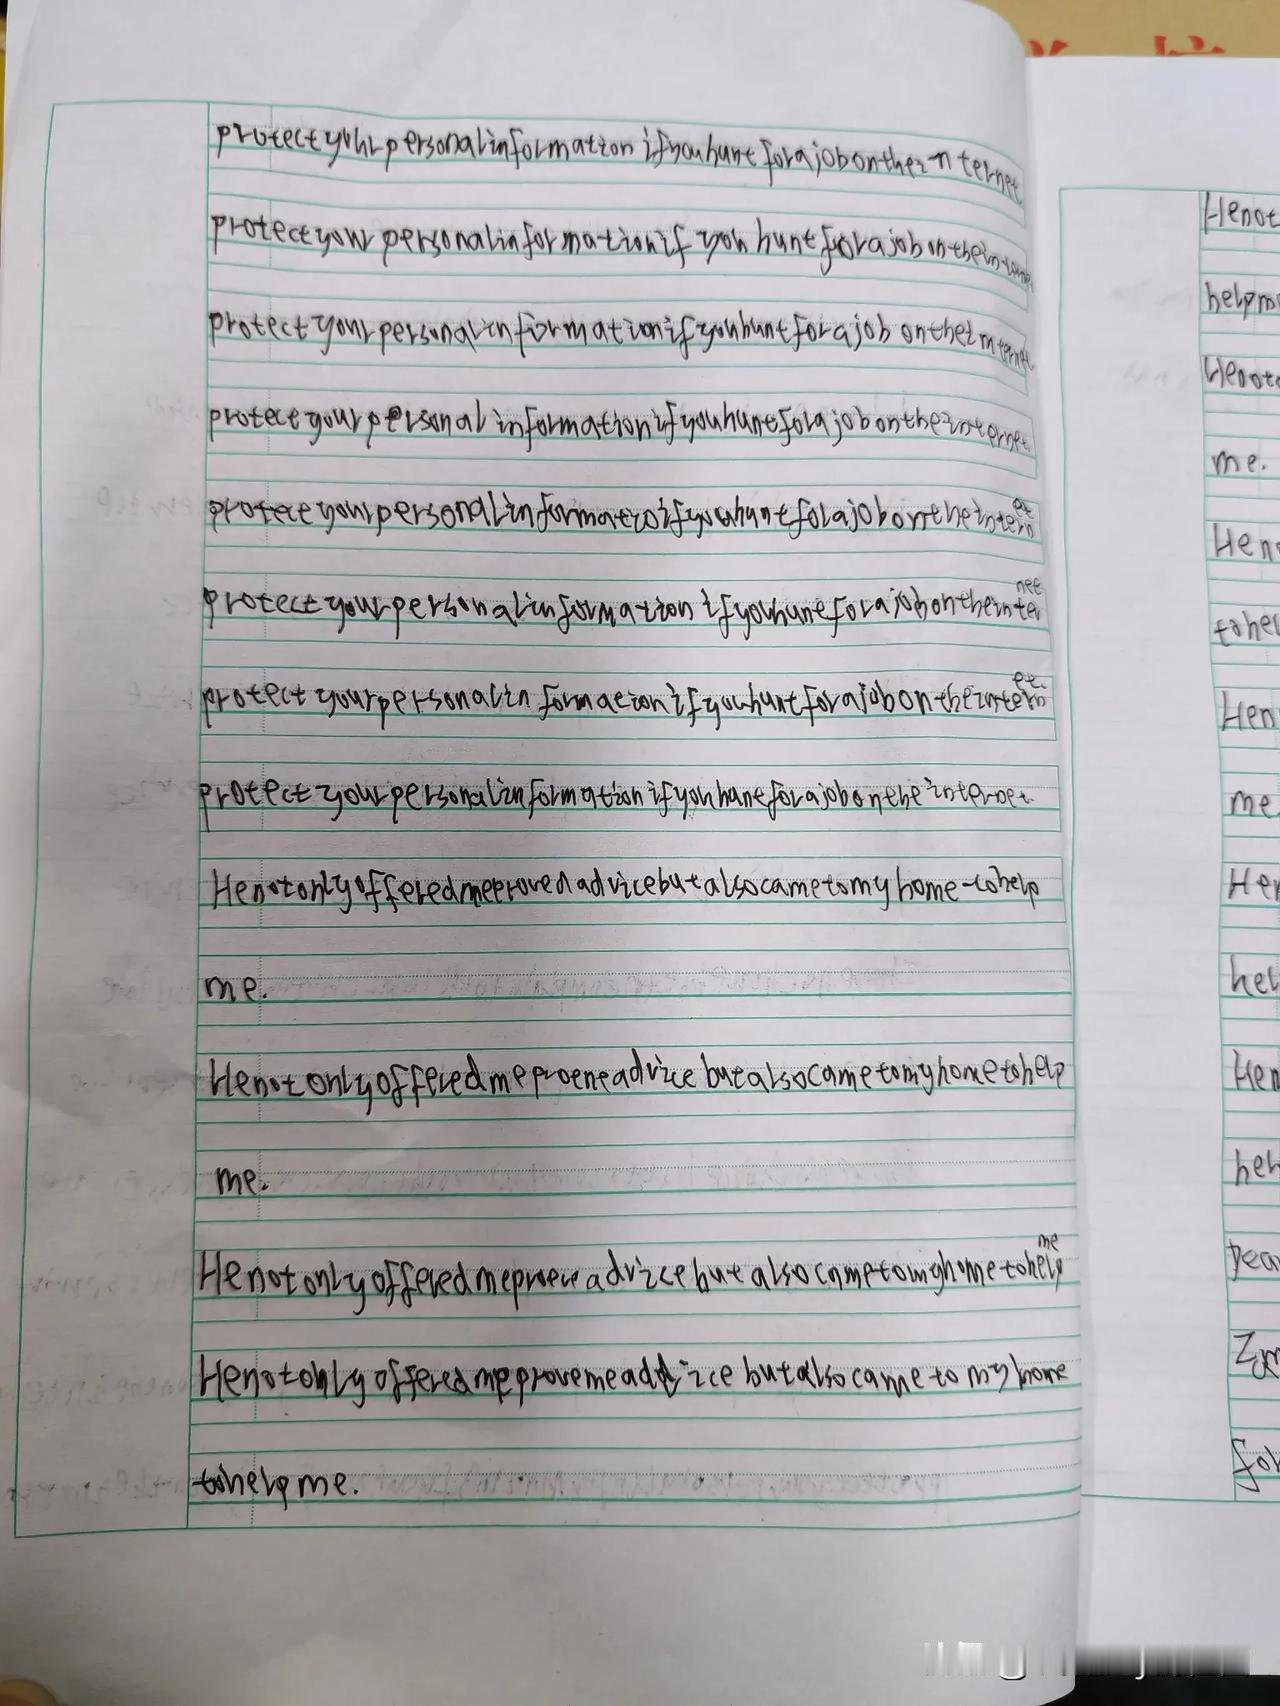 protect your personal information if you hunt for a job on the internet
protect your personal information if you hunt for a job on the
protect your personal information if you hunt for a job on the internet
protect your personal information if you hunt for a job on the internet
protece your personal informatio if you hunt for a job on the internet
protect your personal information if you hunt for a job on the internet
protect your personal information if you hunt for a job on the internet.
protect your personal information if you hunt for a job on the internet.
He not only offered me advice but also came to my home to help
me.
He not only offered me advice but also came to my home to help
me.
He not only offered me advice but also came to my home to help me
He not only offered me prove me advice but also came to my home
to help me.
Henot
help
me.
Hen
tohel
Hen
me
Hen
hel
Hen
hel